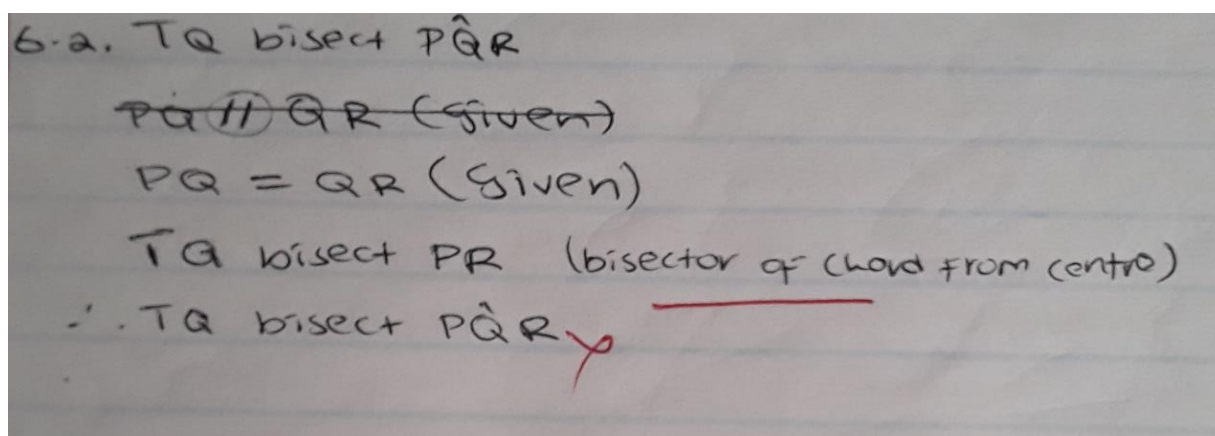 6.2. TQ bisect PQ̂R
PQ // QR (given)
PQ = QR (given)
TQ bisect PR (bisector of chord from centre)
∴ TQ bisect PQ̂R